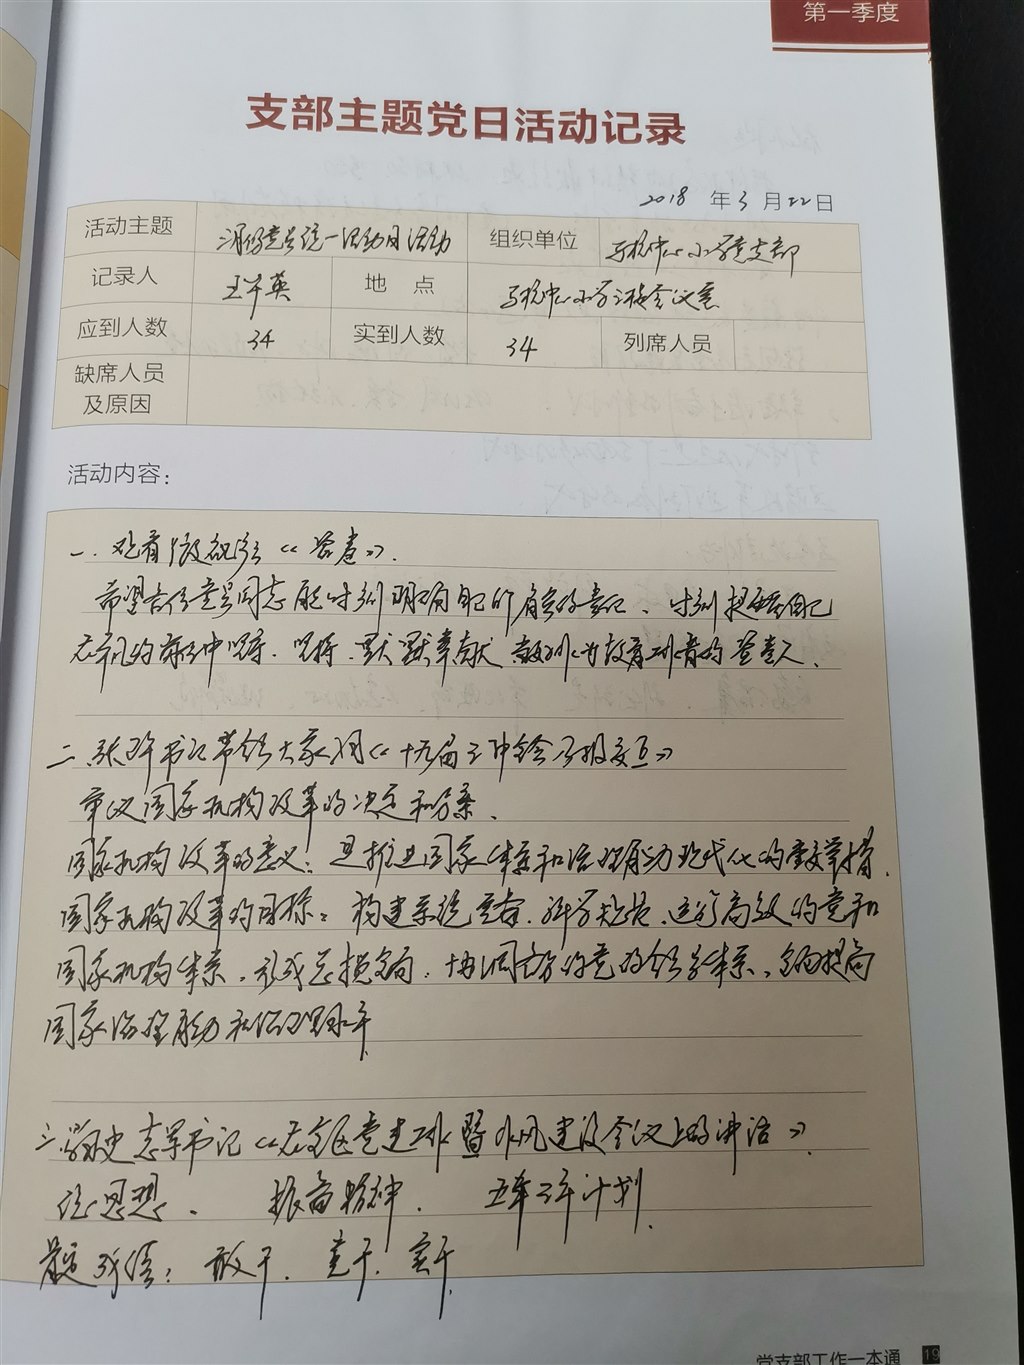 第一季度
支部主题党日活动记录
2018 年 3 月 22 日
活动主题 党员统一活动日活动 组织单位 中心小学党支部
记录人 王 英 地 点 中心小学 楼会议室
应到人数 34 实到人数 34 列席人员
缺席人员
及原因
活动内容：
一.观看微视频《答卷》.
希望各位党员同志能时刻明确自己的肩负的责任、时刻提醒自己
在平凡的 中坚守、坚持、默默奉献 教育工作者的答卷人、
二.张 书记带领大家学习《十九届三中全会公报 》
审议国家机构改革的决定和方案、
国家机构改革的意义：是推进国家体系和治理能力现代化的重要举措、
国家机构改革的目标：构建系统完备、科学规范、运行高效的党和
国家机构体系、形成总揽全局、协调各方的党的领导体系、全面提高
国家治理能力和治理水平
三.学习史志军书记《在全区党建工作暨作风建设会议上的讲话》
思想、 振奋精神、 五年 计划
成绩：敢干、 干、实干
党支部工作一本通 19